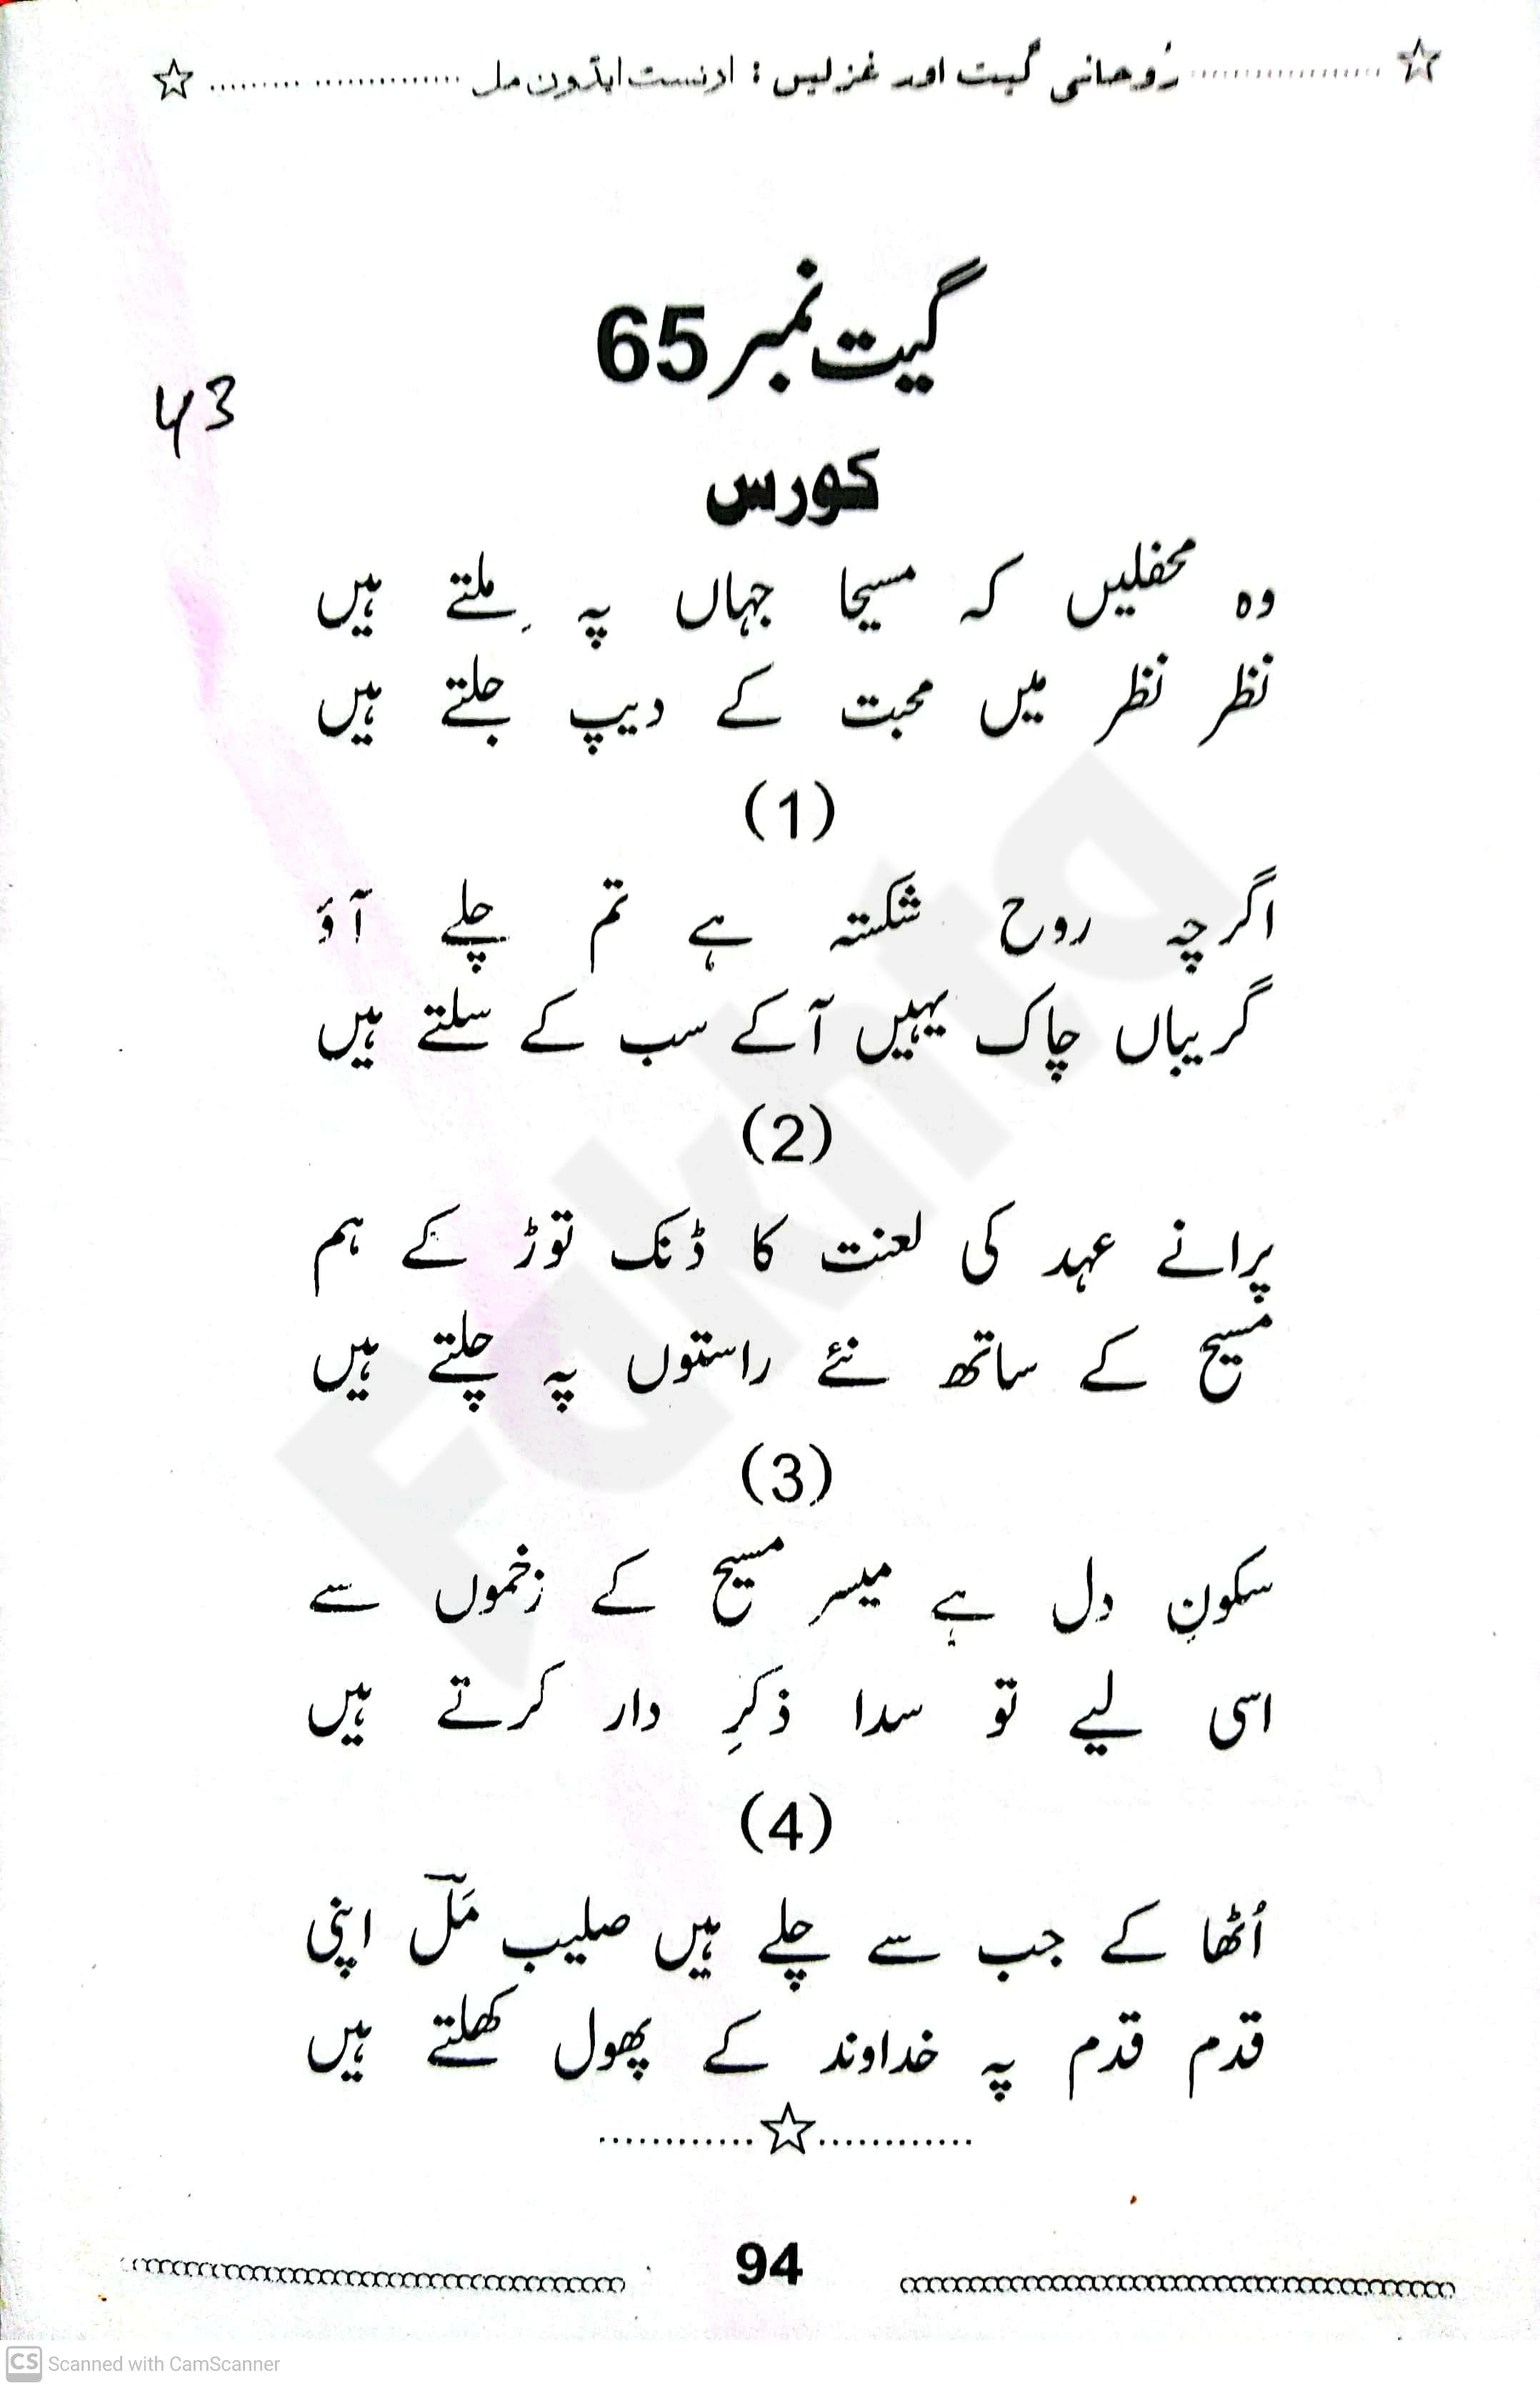 ☆ .................. رُوحانی گیت اور غزلیں : ارنسٹ ایڈون مل .................. ☆
گیت نمبر 65
43
کورس
وہ محفلیں کہ مسیحا جہاں پہ مِلتے ہیں
نظر نظر میں محبت کے دیپ جلتے ہیں
(1)
اگرچہ روح شکستہ ہے تم چلے آؤ
گریباں چاک یہیں آکے سب کے سلتے ہیں
(2)
پرانے عہد کی لعنت کا ڈنک توڑ کے ہم
مسیح کے ساتھ نئے راستوں پہ چلتے ہیں
(3)
سکونِ دل ہے میسر مسیح کے زخموں سے
اسی لیے تو سدا ذکرِ دار کرتے ہیں
(4)
اُٹھا کے جب سے چلے ہیں صلیب مَلؔ اپنی
قدم قدم پہ خداوند کے پھول کھلتے ہیں
............☆............
94
CS Scanned with CamScanner
Fakhta